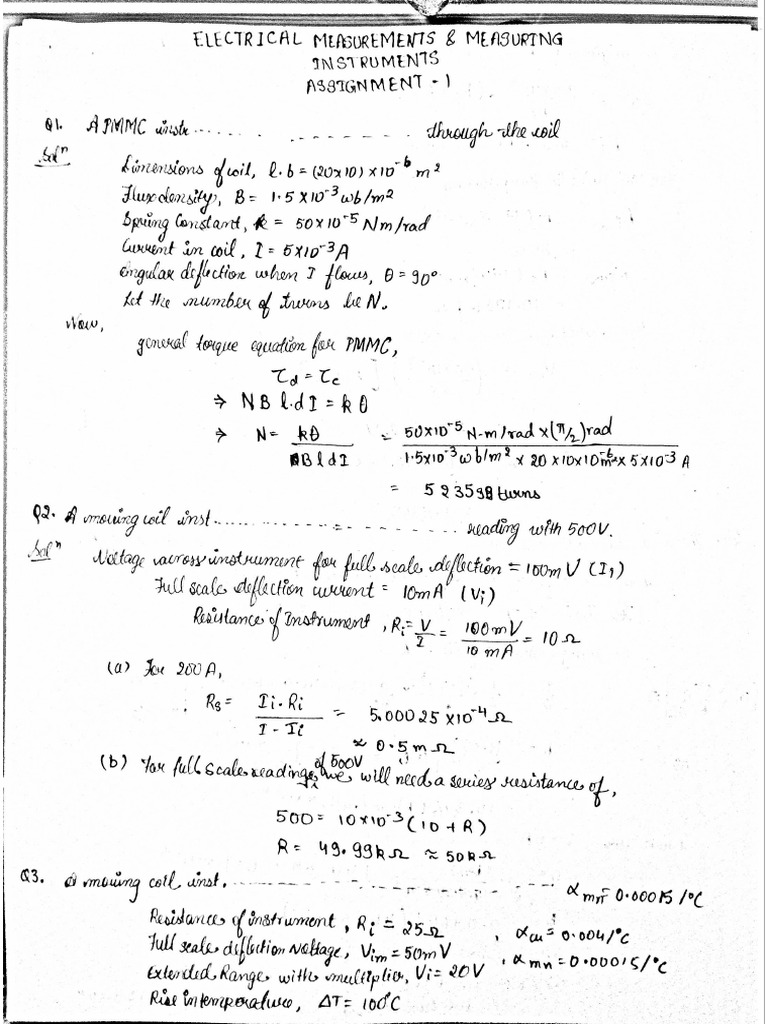 ELECTRICAL MEASUREMENTS & MEASURING
INSTRUMENTS
ASSIGNMENT - 1
Q1. A PMMC instr............ ............ through the coil
Solⁿ
Dimensions of coil, l.b = (20×10) × 10⁻⁶ m²
Flux density, B = 1.5 × 10⁻³ wb/m²
Spring Constant, k = 50×10⁻⁵ Nm/rad
Current in coil, I = 5×10⁻³ A
Angular deflection when I flows, θ = 90°
Let the number of turns be N.
Now,
general torque equation for PMMC,
τd = τc
⇒ NB l.d I = k θ
⇒ N = kθ / B l d I = 50×10⁻⁵ N-m/rad × (π/2) rad / 1.5×10⁻³ wb/m² × 20 × 10×10⁻⁶ m² × 5×10⁻³ A
= 523598 turns
Q2. A moving coil inst............................ reading with 500V.
Solⁿ
Voltage across instrument for full scale deflection = 100mV (I₁)
Full scale deflection current = 10mA (Vi)
Resistance of Instrument, Ri = V / I = 100mV / 10 mA = 10 Ω
(a) For 200A,
Rs = Ii.Ri / I - Ii = 5.00025 ×10⁻⁴ Ω
≈ 0.5 m Ω
(b) For full scale readings of 500V we will need a series resistance of,
500 = 10×10⁻³ (10 + R)
R = 49.99k Ω ≈ 50k Ω
Q3. A moving coil inst. ............................ αmn = 0.00015 /°C
Resistance of instrument, Ri = 25Ω , αcu = 0.004/°C
Full scale deflection Voltage, Vim = 50mV , αmn = 0.00015/°C
Extended Range with multiplier, Vi = 20V
Rise in temperature, ΔT = 10°C